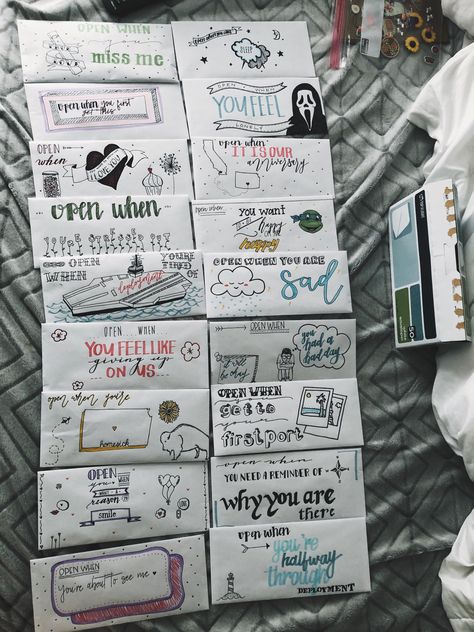 OPEN WHEN
YOU
miss me
open when you can't
SLEEP
open when you first
get this
OPEN WHEN
YOU FEEL
LONELY
OPEN
when
I LOVE YOU
open when
IT IS OUR
anniversary
open when
open when
You want
to be
happy
happy
OPEN
WHEN
YOU'RE
TIRED
OF
deployment
OPEN WHEN YOU ARE
sad
OPEN WHEN
YOU FEEL LIKE
giving up
ON US
OPEN WHEN
you had
a bad
day
it will
be okay
open when you're
homesick
OPEN WHEN
get to
first port
OPEN
WHEN
YOU
NEED
WHAT A
reason
TO
smile
open when
YOU NEED A REMINDER OF
why you are
there
OPEN WHEN
You're about to see me
open when
you're
halfway
through
DEPLOYMENT
50